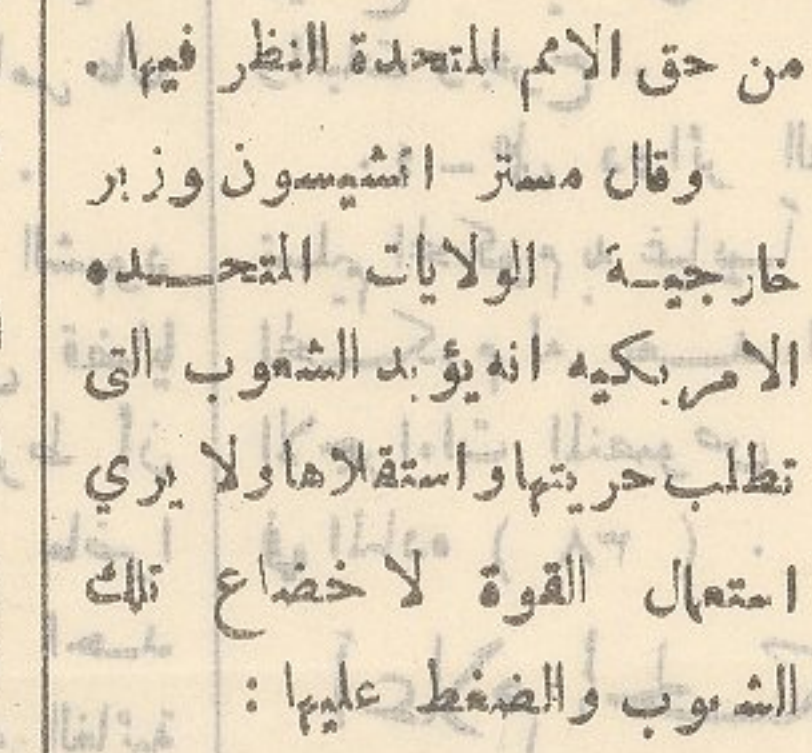 من حق الامم المتحدة النظر فيها .
وقال مستر اتشيسون وزير
خارجيـة الولايات المتحـــده
الامريكيه انه يؤيد الشعوب التى
تطلب حريتها واستقلالها ولا يري
استعمال القوة لاخضاع تلك
الشعوب والضغط عليها :